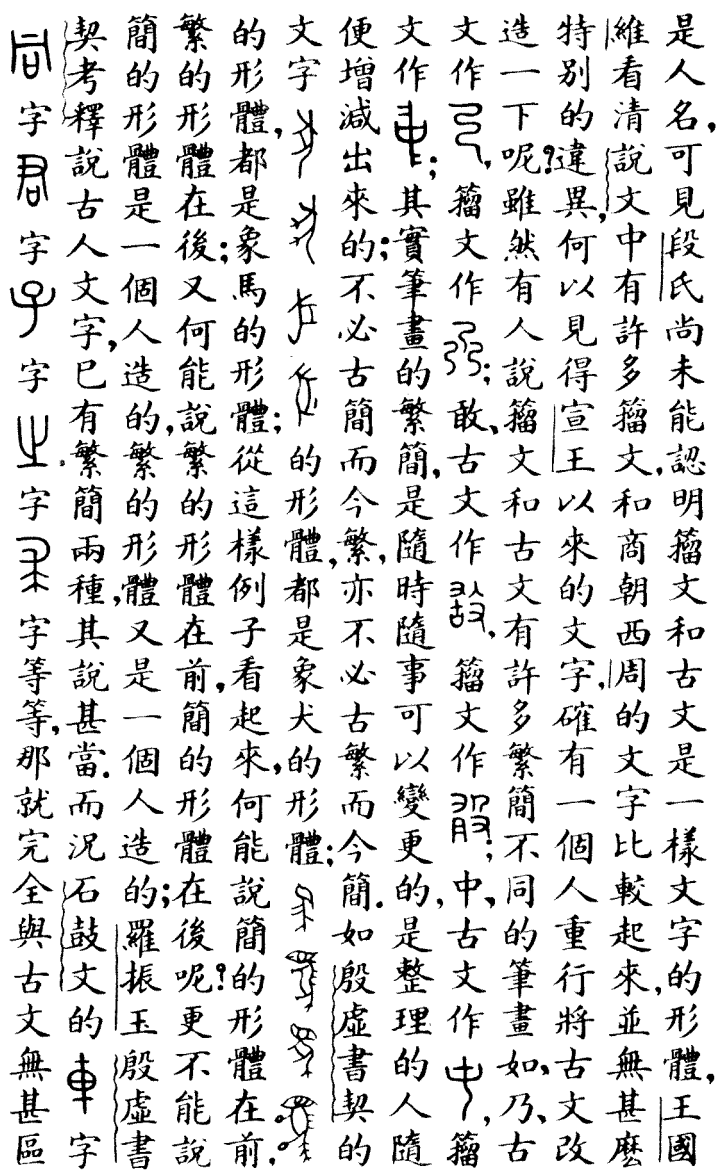 是人名，可見段氏尚未能認明籀文和古文是一樣文字的形體，王國
維看清說文中有許多籀文，和商朝西周的文字比較起來，並無甚麽
特別的違異，何以見得宣王以來的文字，確有一個人重行將古文改
造一下呢？雖然有人說籀文和古文有許多繁簡不同的筆畫如，乃、古
文作，籀文作；敢、古文作，籀文作；中、古文作，籀
文作；其實筆畫的繁簡，是隨時隨事可以變更的，是整理的人隨
便增減出來的；不必古簡而今繁，亦不必古繁而今簡．如殷虛書契的
文字的形體，都是象犬的形體；
的形體，都是象馬的形體；從這樣例子看起來，何能說簡的形體在前，
繁的形體在後；又何能說繁的形體在前，簡的形體在後呢？更不能說
簡的形體是一個人造的，繁的形體又是一個人造的；羅振玉殷虛書
契考釋說古人文字，已有繁簡兩種，其說甚當．而況石鼓文的字
字字字字字等等，那就完全與古文無甚區